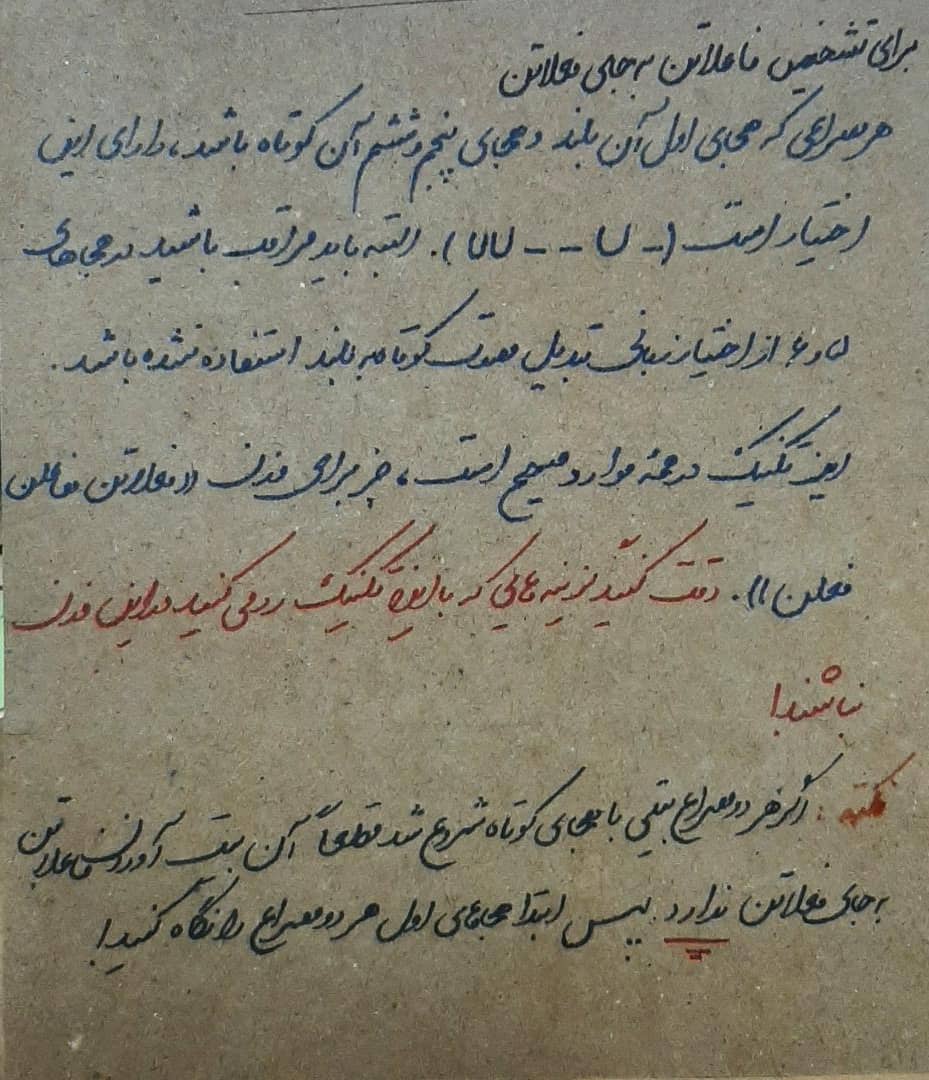 برای تشخیص فاعلاتن به جای فعلاتن
هر مصراعی که هجای اول آن بلند و هجای پنجم و ششم آن کوتاه باشد، دارای این
اختیار است (- U - - U U). البته باید مراقب باشید در هجاهای
۵ و ۶ از اختیار زبانی تبدیل مصوت کوتاه به بلند استفاده نشده باشد.
این تکنیک در همه موارد صحیح است، جز برای وزن «فعلاتن مفاعلن
فعلن». دقت کنید گزینه هایی که با این تکنیک رد می کنید در این وزن
نباشند!
نکته: اگر هر دو مصراع بیتی با هجای کوتاه شروع شد قطعاً آن بیت آوردن فاعلاتن
به جای فعلاتن ندارد. پس ابتدا هجاهای اول هر دو مصراع را نگاه کنید!